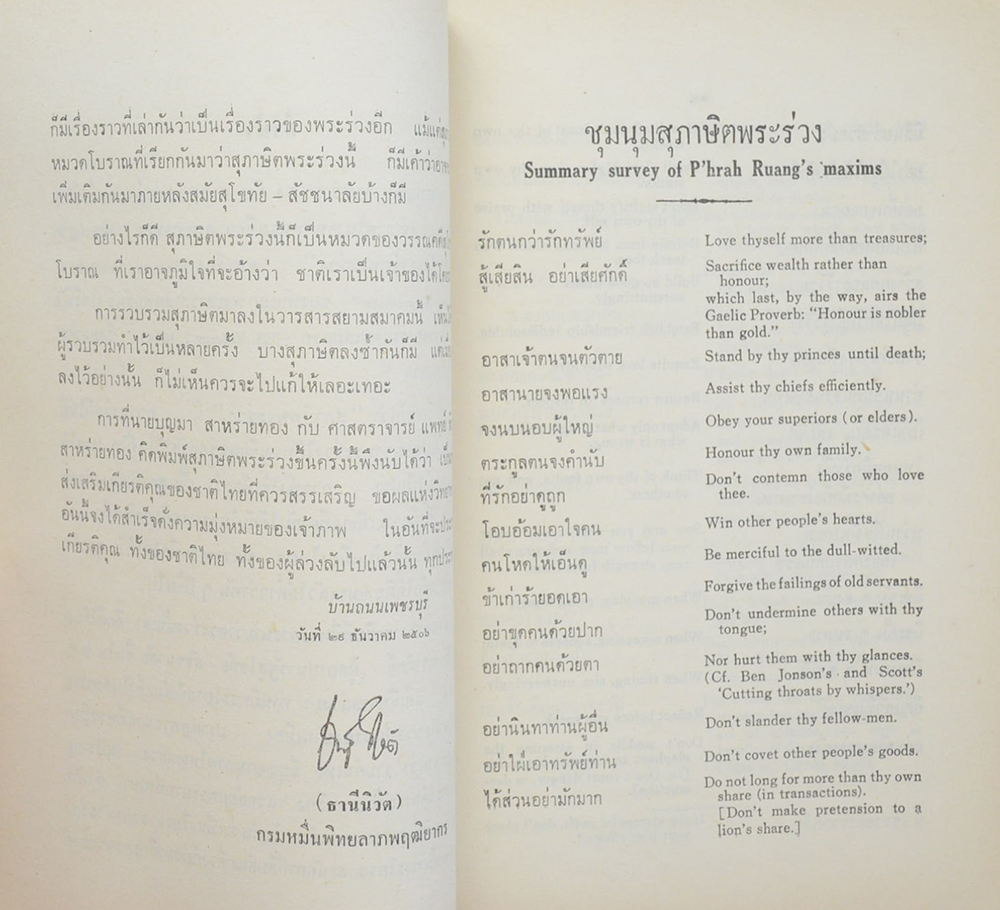 ก็มีเรื่องราวที่เล่ากันว่าเป็นเรื่องราวของพระร่วงอีก แม้แต่
หมวดโบราณที่เรียกกันมาว่าสุภาษิตพระร่วงนี้ ก็มีเค้าว่าอาจ
เพิ่มเติมกันมาภายหลังสมัยสุโขทัย – สัชชนาลัยบ้างก็มี
อย่างไรก็ดี สุภาษิตพระร่วงนี้ก็เป็นหมวดของวรรณคดี
โบราณ ที่เราอาจภูมิใจที่จะอ้างว่า ชาติเราเป็นเจ้าของได้
การรวบรวมสุภาษิตมาลงในวารสารสยามสมาคมนี้
ผู้รวบรวมทำไว้เป็นหลายครั้ง บางสุภาษิตลงซ้ำกันก็มี
ลงไว้อย่างนั้น ก็ไม่เห็นควรจะไปแก้ให้เลอะเทอะ
การที่นายบุญมา สาหร่ายทอง กับ ศาสตราจารย์ แพทย์
สาหร่ายทอง คิดพิมพ์สุภาษิตพระร่วงขึ้นครั้งนี้พึงนับได้ว่า
ส่งเสริมเกียรติคุณของชาติไทยที่ควรสรรเสริญ ขอผลแห่ง
อันนี้จงได้สำเร็จดั่งความมุ่งหมายของเจ้าภาพ ในอันที่จะ
เกียรติคุณ ทั้งของชาติไทย ทั้งของผู้ล่วงลับไปแล้วนั้น
บ้านถนนเพชรบุรี
วันที่ ๒๙ ธันวาคม ๒๕๐๖
(ธานีนิวัต)
กรมหมื่นพิทยลาภพฤฒิยากร
ชุมนุมสุภาษิตพระร่วง
Summary survey of P'hrah Ruang's maxims
รักตนกว่ารักทรัพย์ Love thyself more than treasures;
สู้เสียสิน อย่าเสียศักดิ์ Sacrifice wealth rather than
honour;
which last, by the way, airs the
Gaelic Proverb: "Honour is nobler
than gold."
อาสาเจ้าตนจนตัวตาย Stand by thy princes until death;
อาสานายจงพอแรง Assist thy chiefs efficiently.
จงนบนอบผู้ใหญ่ Obey your superiors (or elders).
ตระกูลตนจงคำนับ Honour thy own family.
ที่รักอย่าดูถูก Don't contemn those who love
thee.
โอบอ้อมเอาใจคน Win other people's hearts.
คนโหดให้เอ็นดู Be merciful to the dull-witted.
ข้าเก่าร้ายอดเอา Forgive the failings of old servants.
อย่าขุดคนด้วยปาก Don't undermine others with thy
tongue;
อย่าถากคนด้วยตา Nor hurt them with thy glances.
(Cf. Ben Jonson's and Scott's
'Cutting throats by whispers.')
อย่านินทาท่านผู้อื่น Don't slander thy fellow-men.
อย่าใผ่เอาทรัพย์ท่าน Don't covet other people's goods.
ได้ส่วนอย่ามักมาก Do not long for more than thy own
share (in transactions).
[Don't make pretension to a
lion's share.]